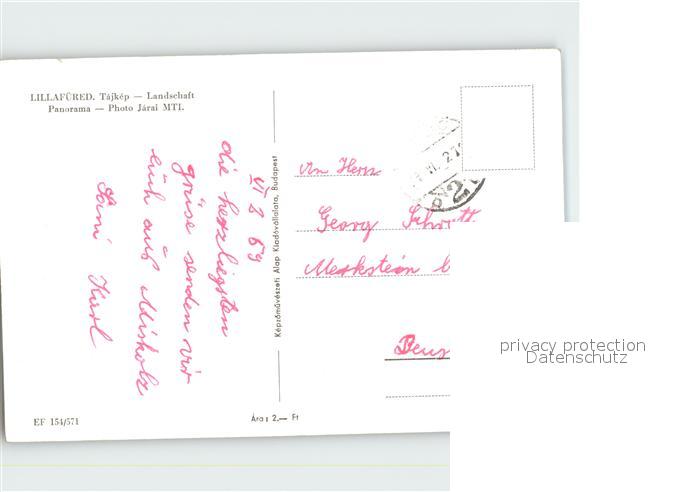 LILLAFÜRED. Tájkép — Landschaft
Panorama — Photo Járai MTI.
VI 8 69
die herzliegsten
grüse senden wir
euch auß Miskolz
Karl
Képzőművészeti Alap Kiadóvállalata, Budapest
An Herrn
Georg
Merkstein b
EF 154/571
Ára: 2.— Ft
privacy protection
Datenschutz